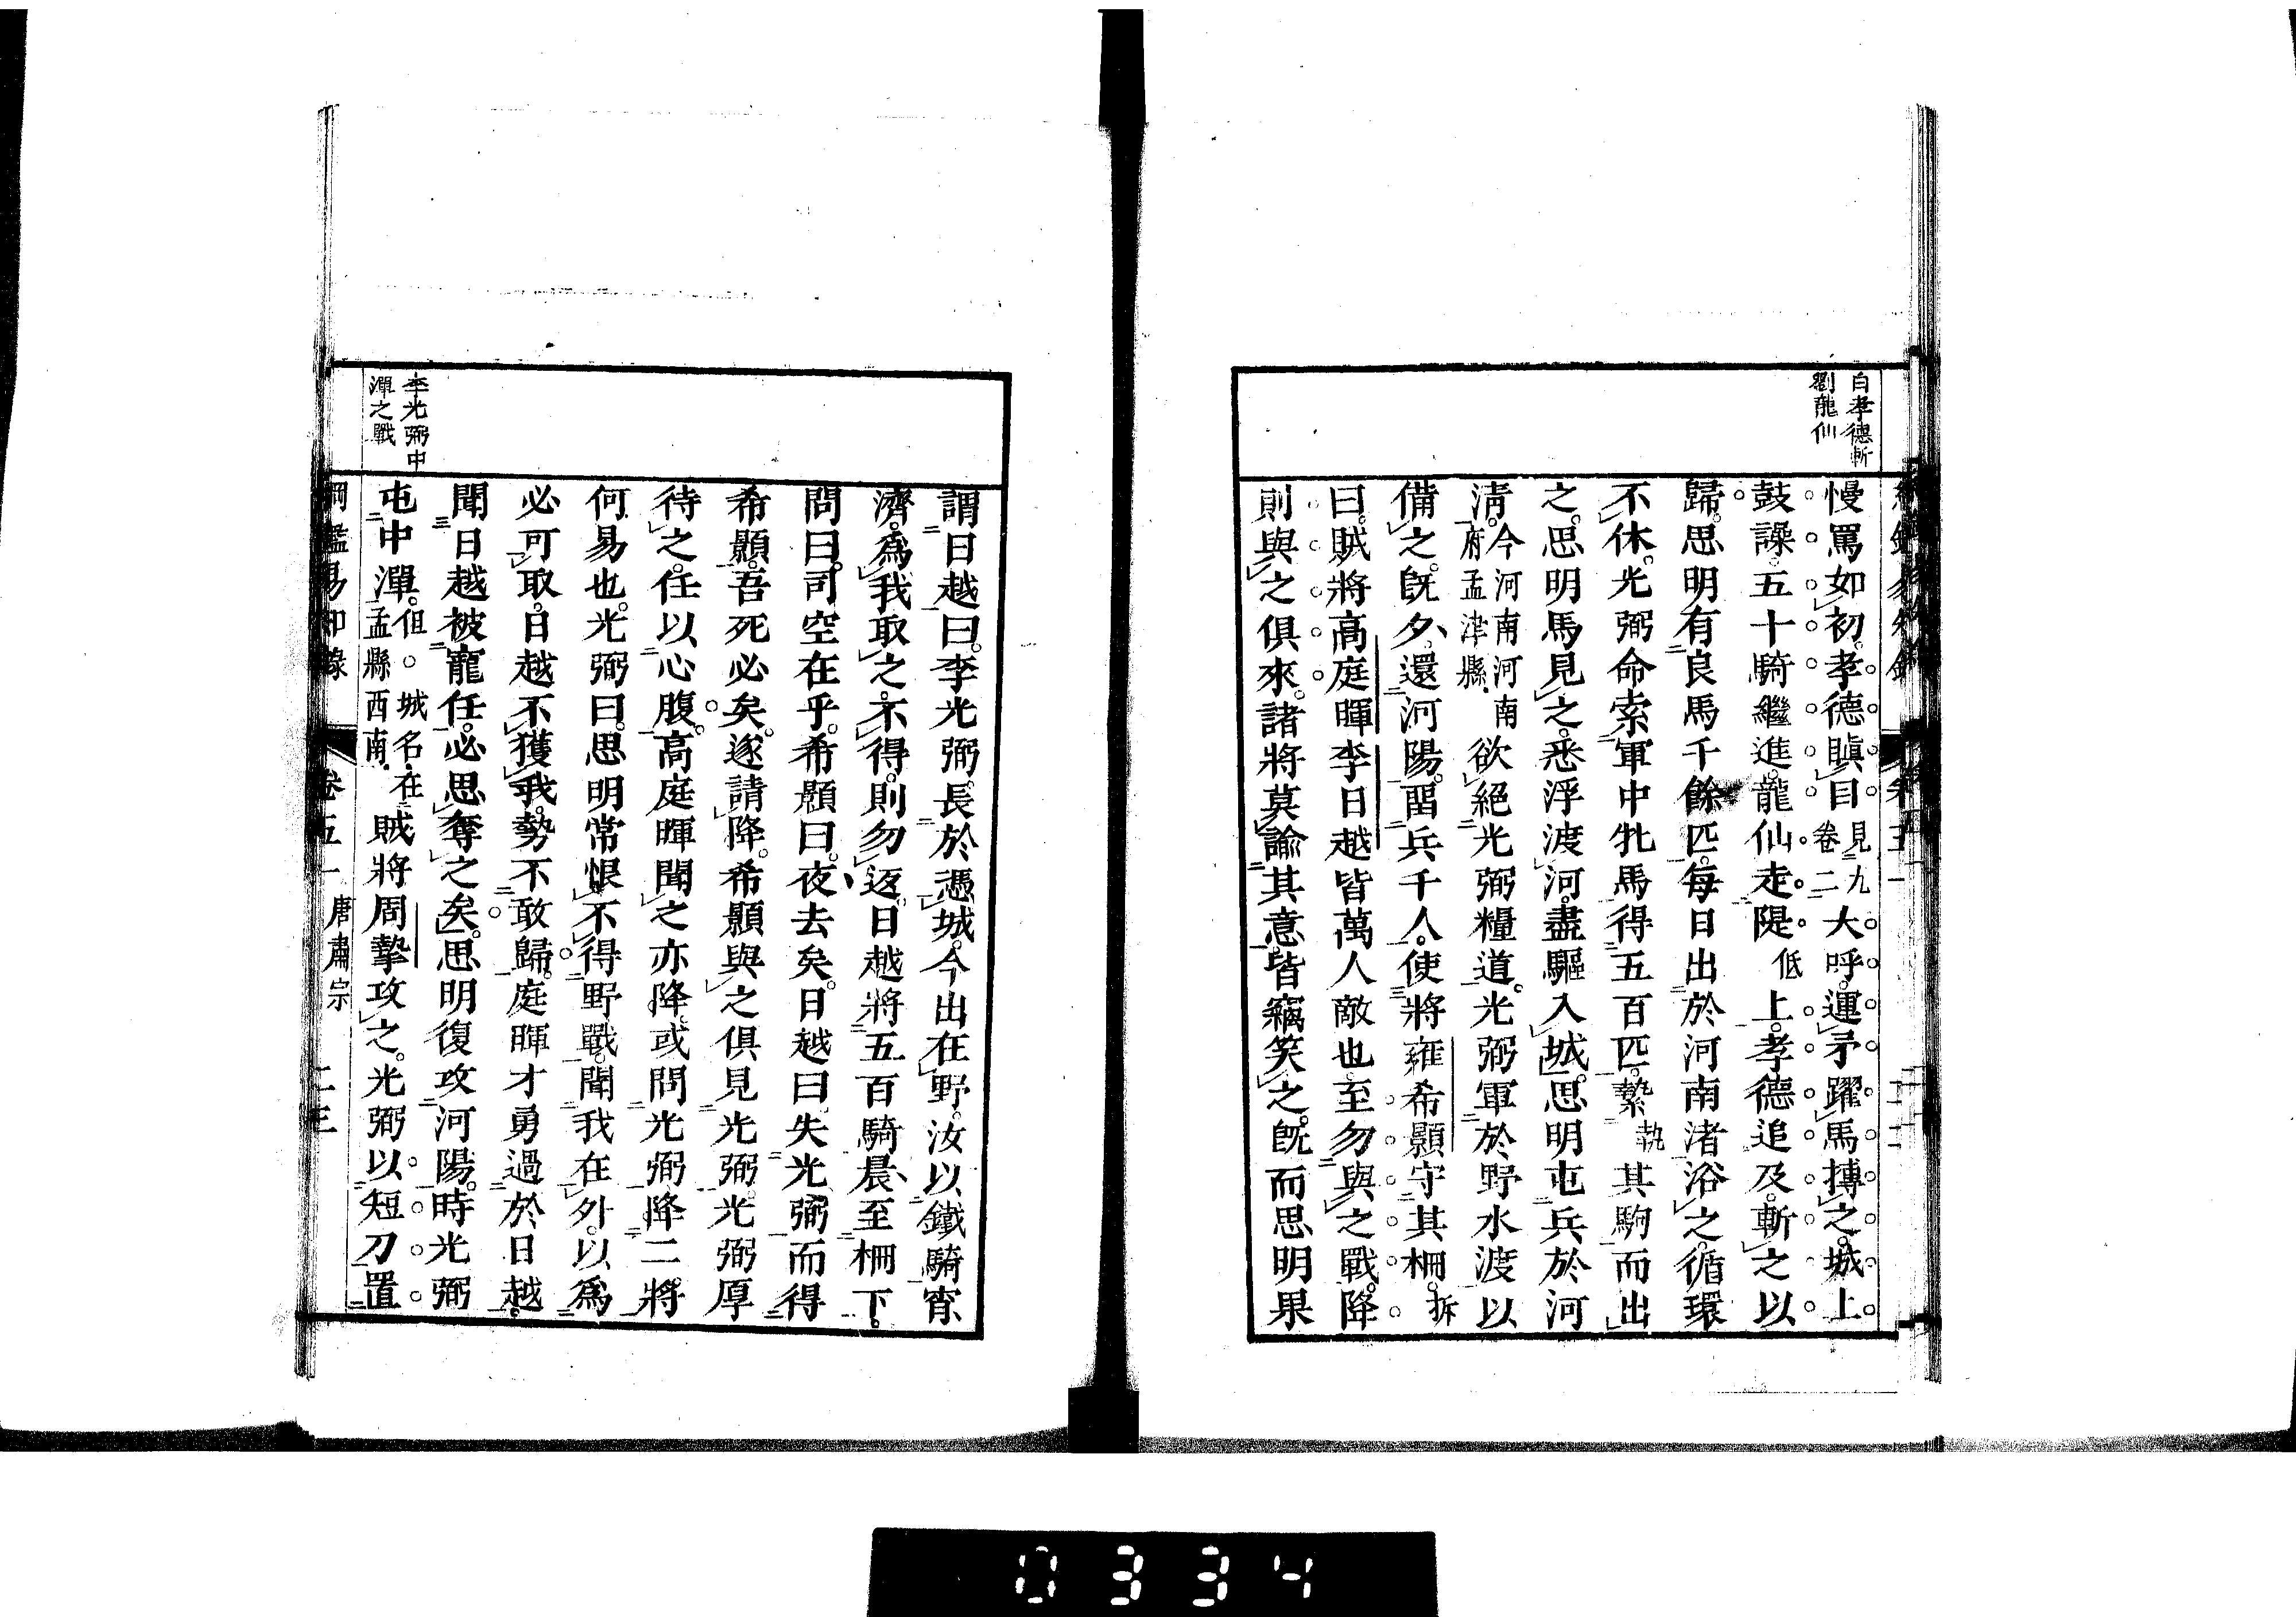 白孝德斬
劉龍仙
慢罵如初。孝德瞋目見九卷二大呼。運矛躍馬搏之。城上
鼓譟。五十騎繼進。龍仙走隄低上。孝德追及。斬之以
歸。思明有良馬千餘匹。每日出於河南渚浴之。循環
不休。光弼命索軍中牝馬得五百匹。縶執其駒而出
之。思明馬見之。悉浮渡河。盡驅入城。思明屯兵於河
清。今河南河南府孟津縣。欲絕光弼糧道。光弼軍於野水渡以
備之。旣夕、還河陽。留兵千人。使將雍希顥守其柵。拆
曰。賊將高庭暉李日越皆萬人敵也。至勿與之戰。降
則與之俱來。諸將莫諭其意。皆竊笑之。旣而思明果
謂日越曰。李光弼長於憑城。今出在野。汝以鐵騎宵
濟。爲我取之。不得。則勿返。日越將五百騎、晨至柵下。
問曰。司空在乎。希顥曰。夜去矣。日越曰。失光弼而得
希顥。吾死必矣。遂請降。希顥與之俱見光弼。光弼厚
待之。任以心腹。高庭暉聞之亦降。或問光弼降二將
何易也。光弼曰。思明常恨不得野戰。聞我在外。以爲
必可取。日越不獲我。勢不敢歸。庭暉才勇過於日越。
聞日越被寵任。必思奪之矣。思明復攻河陽。時光弼
屯中潬。但。城名。在孟縣西南。賊將周摯攻之。光弼以短刀置
李光弼中
潬之戰
綱鑑易知錄 卷五一 唐肅宗 二三
0334